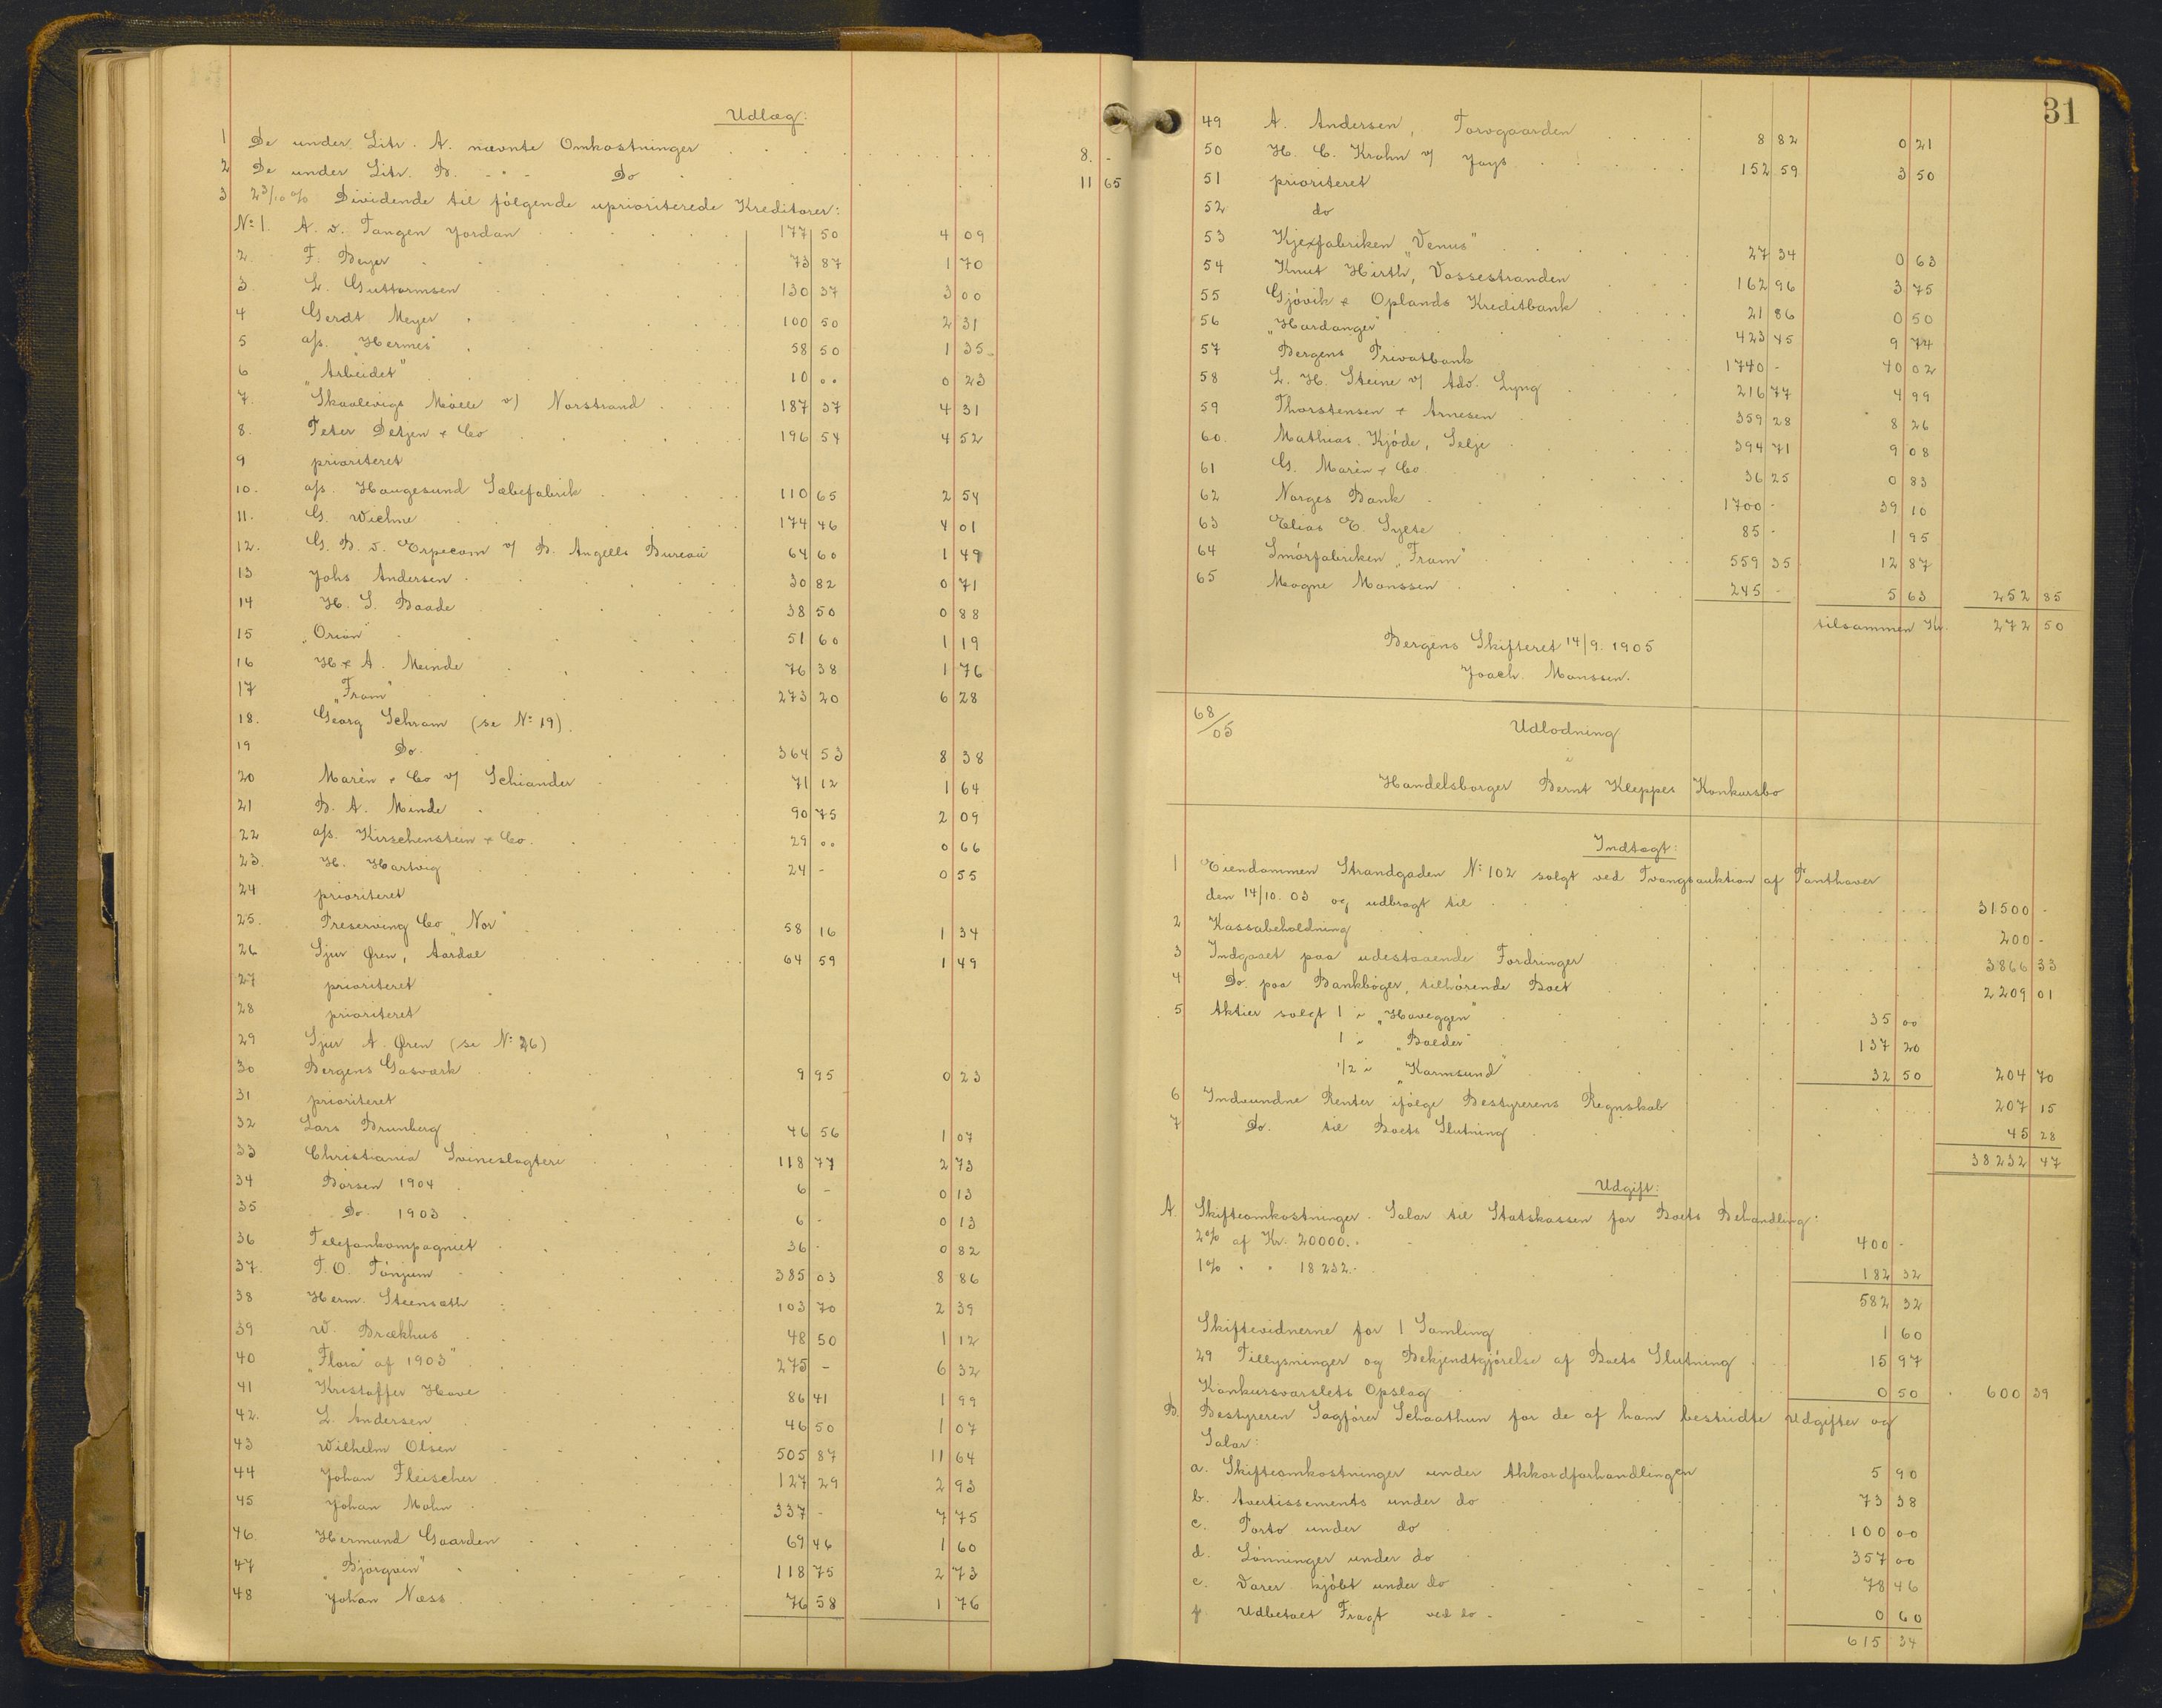 Udlæg:
1 De under Litr. A. nævnte Omkostninger 8. -
2 De under Litr. B. - " - Do 11 65
3 2 3/10 % Dividende til følgende uprioriterede Kreditorer:
No 1. A. v. Tangen Jordan 177 50 4 09
2. F. Beyer 73 87 1 70
3. L. Guttormsen 130 37 3 00
4 Gerdt Meyer 100 50 2 31
5 a/s. "Hermes" 58 50 1 35
6 "Arbeidet" 10 00 0 23
7. Skaalevigs Mølle v/ Norstrand 187 37 4 31
8. Peter Detjen & Co 196 54 4 52
9 prioriteret
10. a/s. Haugesund Sæbefabrik 110 65 2 54
11. G. Wiehne 174 46 4 01
12. G. B. v. Erpecom v/ B. Angells Bureau 64 60 1 49
13 Johs Andersen 30 82 0 71
14 H. S. Baade 38 50 0 88
15 "Orion" 51 60 1 19
16 H & A. Meinde 76 38 1 76
17 "Fram" 273 20 6 28
18. Georg Schram (se No 19)
19 Do. 364 53 8 38
20 Marèn & Co v/ Schiander 71 12 1 64
21 B. A. Minde 90 75 2 09
22 a/s. Kirschenstein & Co. 29 00 0 66
23. H. Hartvig 24 - 0 55
24 prioriteret
25. Preserving Co "Nor" 58 16 1 34
26 Sjur Øren, Aardal 64 59 1 49
27 prioriteret
28 prioriteret
29 Sjur A. Øren (se No 26)
30 Bergens Gasværk 9 95 0 23
31 prioriteret
32 Lars Brunborg 46 56 1 07
33 Christiania Svineslagteri 118 77 2 73
34 Børsen 1904 6 - 0 13
35 Do. 1903 6 - 0 13
36 Telefonkompagniet 36 - 0 82
37. T. O. Tönjum 385 03 8 86
38 Herm. Steensøth 103 70 2 39
39 W. Brækhus 48 50 1 12
40 "Flora" af 1903" 275 - 6 32
41 Kristoffer Hove 86 41 1 99
42. L. Andersen 46 50 1 07
43 Wilhelm Olsen 505 87 11 64
44 Johan Fleischer 127 29 2 93
45 Johan Mohn 337 - 7 75
46. Hermund Gaarden 69 46 1 60
47 "Bjørgvin" 118 75 2 73
48 Johan Næss 76 58 1 76
31
49 A. Andersen, Torvgaarden 8 82 0 21
50 H. C. Krohn v/ Jays 152 59 3 50
51 prioriteret
52 do
53 Kjexfabriken "Venus" 27 34 0 63
54 Knut Hirth, Vossestranden 162 96 3 75
55 Gjøvik & Oplands Kreditbank 21 86 0 50
56 "Hardanger" 423 45 9 74
57 Bergens Privatbank 1740 - 40 02
58 L. H. Steine v/ Adv. Lyng 216 77 4 99
59 Thorstensen & Arnesen 359 28 8 26
60. Mathias Kjøde, Selje 394 71 9 08
61 G. Marèn & Co 36 25 0 83
62 Norges Bank 1700 - 39 10
63 Elias E. Sylte 85 - 1 95
64 Smørfabriken "Fram" 559 35 12 87
65 Mogne Monssen 245 - 5 63 252 85
tilsammen Kr. 272 50
Bergens Skifteret 14/9. 1905
Joach. Monssen.
68/05
Udlodning
i
Handelsborger Bernt Kleppes Konkursbo
Indtægt:
1 Eiendommen Strandgaden No 102 solgt ved Tvangsauktion af Panthaver
den 14/10. 03 og udbragt til 31500 -
2 Kassabeholdning 200 -
3 Indgaaet paa udestaaende Fordringer 3866 33
4 Do. paa Bankbøger, tilhørende Boet 2209 01
5 Aktier solgt 1 i "Havæggen" 35 00
1 i "Balder" 137 20
1/2 i "Karmsund" 32 50 204 70
6 Indvundne Renter ifølge Bestyrerens Regnskab 207 15
7 Do. til Boets Slutning 45 28
38232 47
Udgift:
A. Skifteomkostninger. Salær til Statskassen for Boets Behandling:
2% af Kr. 20000.- 400 -
1% " " 18232.- 182 32
582 32
Skiftevidnerne for 1 Samling 1 60
29 Tillysninger og Bekjendtgjørelse af Boets Slutning 15 97
Konkursvarslets Opslag 0 50 600 39
B. Bestyreren Sagfører Schaathun for de af ham bestridte Udgifter og
Salær:
a. Skifteomkostninger under Akkordforhandlingen 5 90
b. Avertissements under do 73 38
c. Porto under do 100 00
d. Lønninger under do 357 00
e. Varer kjøbt under do 78 46
f Udbetalt Fragt ved do 0 60
615 34